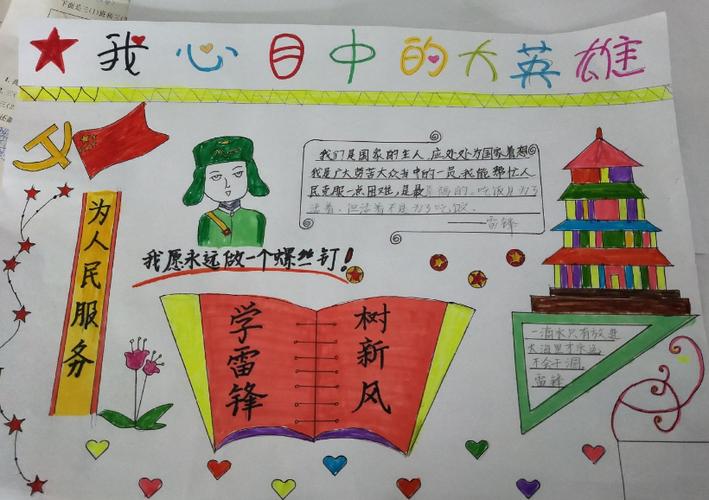 我心目中的大英雄
我们是国家的主人,应处处为国家着想
我是广大劳苦大众当中的一员,我能帮忙人
民克服一点困难,是最幸福的。吃饭是为了
活着,但活着不是为了吃饭。
雷锋
我愿永远做一个螺丝钉!
为人民服务
学雷锋
树新风
一滴水只有放进
大海里才永远
不会干涸。
雷锋
下面是三(1)班